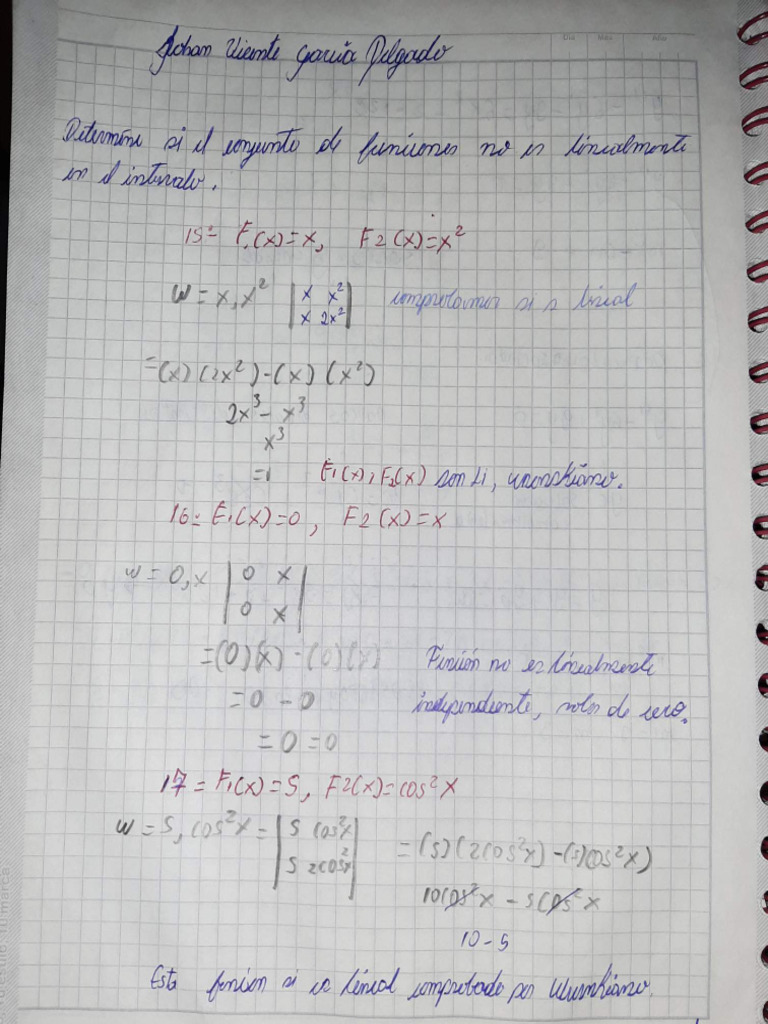 Johan Vicente García Delgado
Determine si el conjunto de funciones no es linealmente
en el intervalo.
15= F1(x)=x, F2(x)=x²
W=x,x² |x x²| comprobamos si s lineal
|x 2x²|
=(x)(2x²)-(x)(x²)
2x³-x³
x³
=1 F1(x), F2(x) son Li, wronskiano.
16= F1(x)=0, F2(x)=x
w=0,x |0 x|
|0 x|
=(0)(x)-(0)(x) Función no es linealmente
=0-0 independiente, sale de cero.
=0=0
17= F1(x)=5, F2(x)=cos²x
w=5,cos²x= |5 cos²x| =(5)(2cos²x)-(5)cos²x)
|5 2cos²x|
10cos²x-5cos²x
10-5
Esta funsion si es lineal comprobado por Wronkiano.